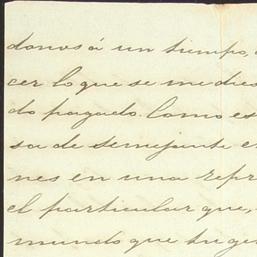 donos á un tiempo,
cer lo que se me dies
do pagado. Como es
sa de semejante e
nes en una repr
el particular que,
mundo que tu ge